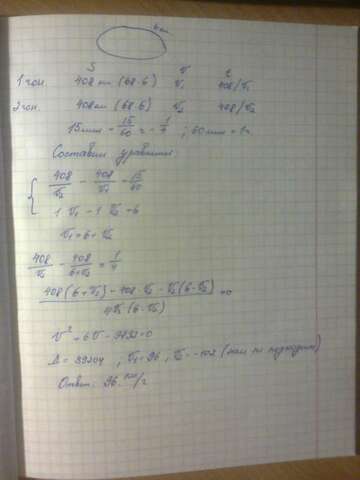 6 км
S v t
1 гон. 408 км (68·6) v₁ 408/v₁
2 гон. 408 км (68·6) v₂ 408/v₂
15 мин = 15/60 ч = 1/4, 60 мин = 1ч
Составим уравнение:
{ 408/v₂ − 408/v₁ = 15/60
1·v₁ − 1·v₂ = 6
v₁ = 6 + v₂
408/v₂ − 408/(6+v₂) = 1/4
(408(6+v₂) − 408·v₂ − v₂(6−v₂))/(4v₂(6−v₂)) = 0
v² + 6v − 9792 = 0
D = 39204, v₁ = 96, v₂ = −102 (нам не подходит)
Ответ: 96 км/ч